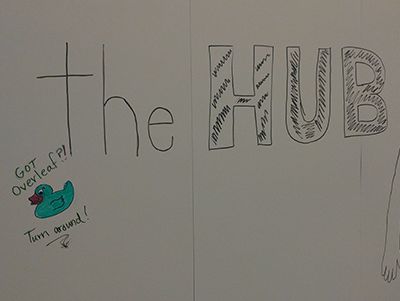 the HUB
GOT
Overleaf?!
Turn around!